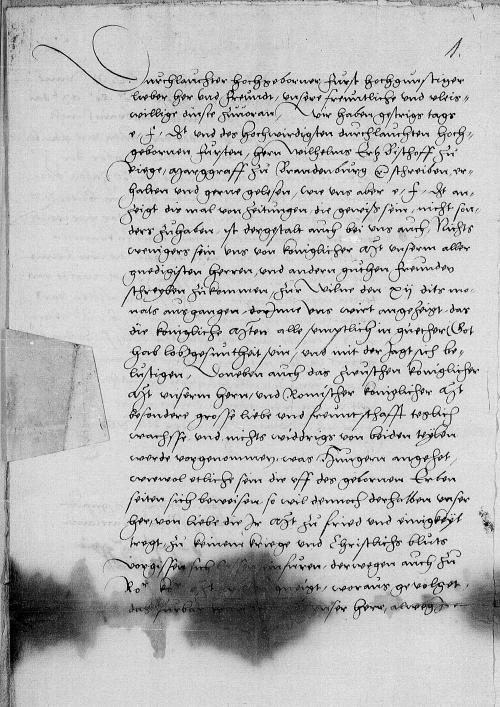 1.
Durchlauchter hochgeborner furst hochgunstiger
lieber her vnd freundt, vnsere freuntliche vnd vleis-
willige dinste zuuoran, Wir haben gestrigs tags
e. f. dt vnd des hochwirdigsten durchlauchten hoch-
gebornen fursten, hern Wilhelms Ertzbischoff zu
Riige, Marggraff zu Brandenburg schreiben, er-
halten vnd gerne gelesen, wie vns aber e. f. dt an-
zeigt dis mal von zeitungen, die gewiss sein, nicht son-
ders zuhaben, ist dergestalt auch bei vns auch, Nichts
wenigers sein vns von koniglicher Mt vnserm aller
gnedigisten herren, vnd andern guthen freunden
schreyben zukommen, zur Wilne den xij dits mo-
nats ausgangen, dorjnne vns wirt angezeigt, das
die konigliche Mten alle semptlich in guether (Got
hab lob) gesuntheit sein, vnd mit der Jagt sich be-
lustigen, Doneben auch das zwuschen koniglicher
Mt vnserm hern, vnd Romischer koniglicher Mt
besondere grosse liebe vnd freuntschafft teglich
wachsse, vnd nichts widdrigs von beiden teylen
werde vorgenommen, was Hungern angehet,
wiewol etliche sein die vff des gebornen Erben
seiten sich beweisen, so wil dennoch derhalben vnser
her, von liebe die Ir Mt zu fried vnd einigkeyt
tregt, zu keinem kriege vnd Christlichs bluts
vorgissen sich furen, derwegen auch zu
Ro. ko. Mt geneigt, woraus gevolget,
das vnser herr, alweg